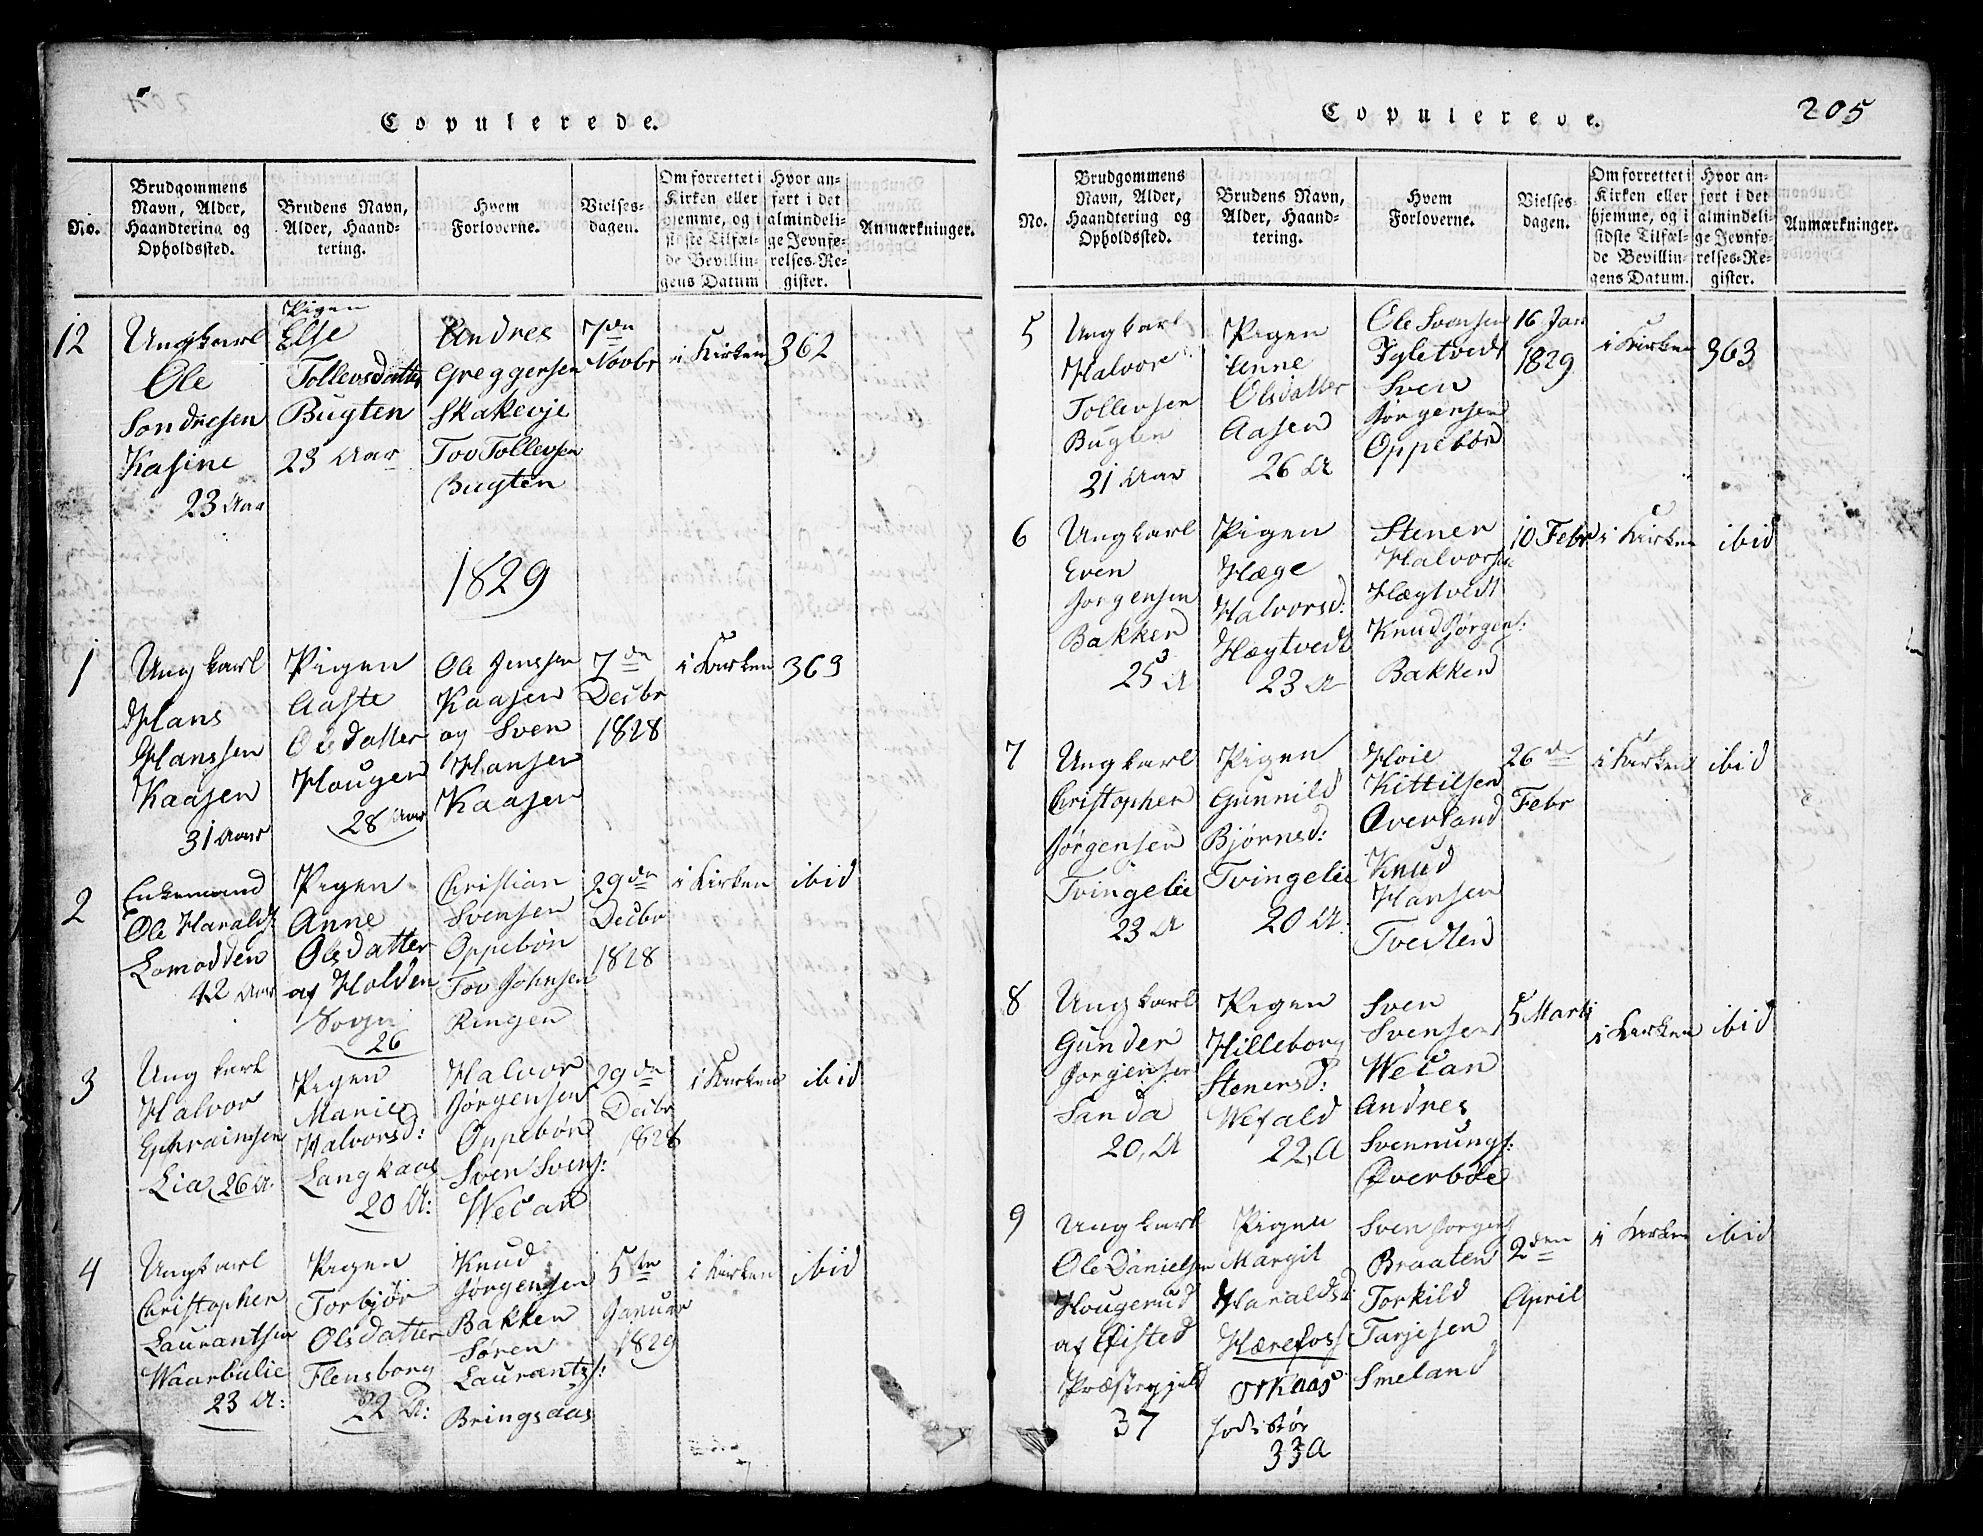 Copulerede.
No.
Brudgommens
Navn, Alder,
Haandtering og
Opholdssted.
Brudens Navn,
Alder, Haand-
tering.
Hvem
Forloverne.
Vielses-
dagen.
Om forrettet i
Kirken eller
hjemme, og i
sidste Tilfæl-
de Bevillin-
gens Datum
Hvor an-
ført i det
almindeli-
ge Jevnfø-
relses-Re-
gister.
Anmærkninger.
12
Ungkarl
Ole
Sondresen
Kasine
23 Aar
Pigen
Else
Tollevsdatter
Bugten
23 Aar
Andres
Greggersen
Skakevje
Tov Tollevsen
Bugten
7de
Novbr
i Kirken
362
1829
1
Ungkarl
Hans
Hanssen
Kaasen
31 Aar
Pigen
Aaste
Olsdatter
Hougen
28 Aar
Ole Jenssen
Kaasen
og Sven
Hansen
Kaasen
7de
Decbr
1828
i Kirken
363
2
Enkemand
Ole Haralds:
Lomodden
42 Aar
Pigen
Anne
Olsdatter
af Holden
Sogn
26
Christian
Svensen
Oppebøn
Tov Johnsen
Ringen
29de
Decbr
1828
i Kirken
ibid
3
Ungkarl
Halvor
Ephraimsen
Lia 26 A.
Pigen
Marie
Halvorsd:
Langkaas
20 A:
Halvor
Jørgensen
Oppebøn
Sven Svens:
Wecan
29de
Decbr
1828
i Kirken
ibid
4
Ungkarl
Christopher
Laurantsen
Waarbulie
23 A:
Pigen
Torbjør
Olsdatter
Flensborg
22 A:
Knud
Jørgensen
Bakken
Søren
Laurantzs:
Bringsaas
5te
Januar
1829
i Kirken
ibid
Copulerede.
205
No.
Brudgommens
Navn, Alder,
Haandtering og
Opholdssted.
Brudens Navn,
Alder, Haand-
tering.
Hvem
Forloverne.
Vielses-
dagen.
Om forrettet i
Kirken eller
hjemme, og i
sidste Tilfæl-
de Bevillin-
gens Datum.
Hvor an-
ført i det
almindeli-
ge Jevnfø-
relses-Re-
gister.
Anmærkninger.
5
Ungkarl
Halvor
Tollevsen
Bugten
21 Aar
Pigen
Anne
Olsdatter
Aasen
26 A
Ole Svensen
Igletvedt
Sven
Jørgensen
Oppebøn
16 Jan
1829
i Kirken
363
6
Ungkarl
Even
Jorgensen
Bakken
25 A
Pigen
Hæge
Halvorsd:
Hægtvedt
23 A
Stener
Halvorsen
Hægtvedt
Knud Jørgens:
Bakken
10 Febr
i Kirken
ibid
7
Ungkarl
Christopher
Jørgensen
Tvingelie
23 A
Pigen
Gunnild
Bjørnsd:
Tvingelie
20 A.
Hoie
Kittilsen
Overland
Knud
Hansen
Tvedten
26de
Febr
i Kirken
ibid
8
Ungkarl
Gunder
Jorgensen
Sanda
20, A
Pigen
Hilleborg
Stenersd:
Wefald
22, A
Sven
Svensen
Wecan
Andres
Svennungs:
Øverbøe
5 Marts
i Kirken
ibid
9
Ungkarl
Ole Danielsen
Hougerud
af Øisted
Præstegjeld
37
Pigen
Margit
Haraldsd
Hærefoss
Orkaas
33 A
Sven Jorgens
Braaten
Torkild
Tarjesen
Smeland
2den
April
i Kirken
ibid